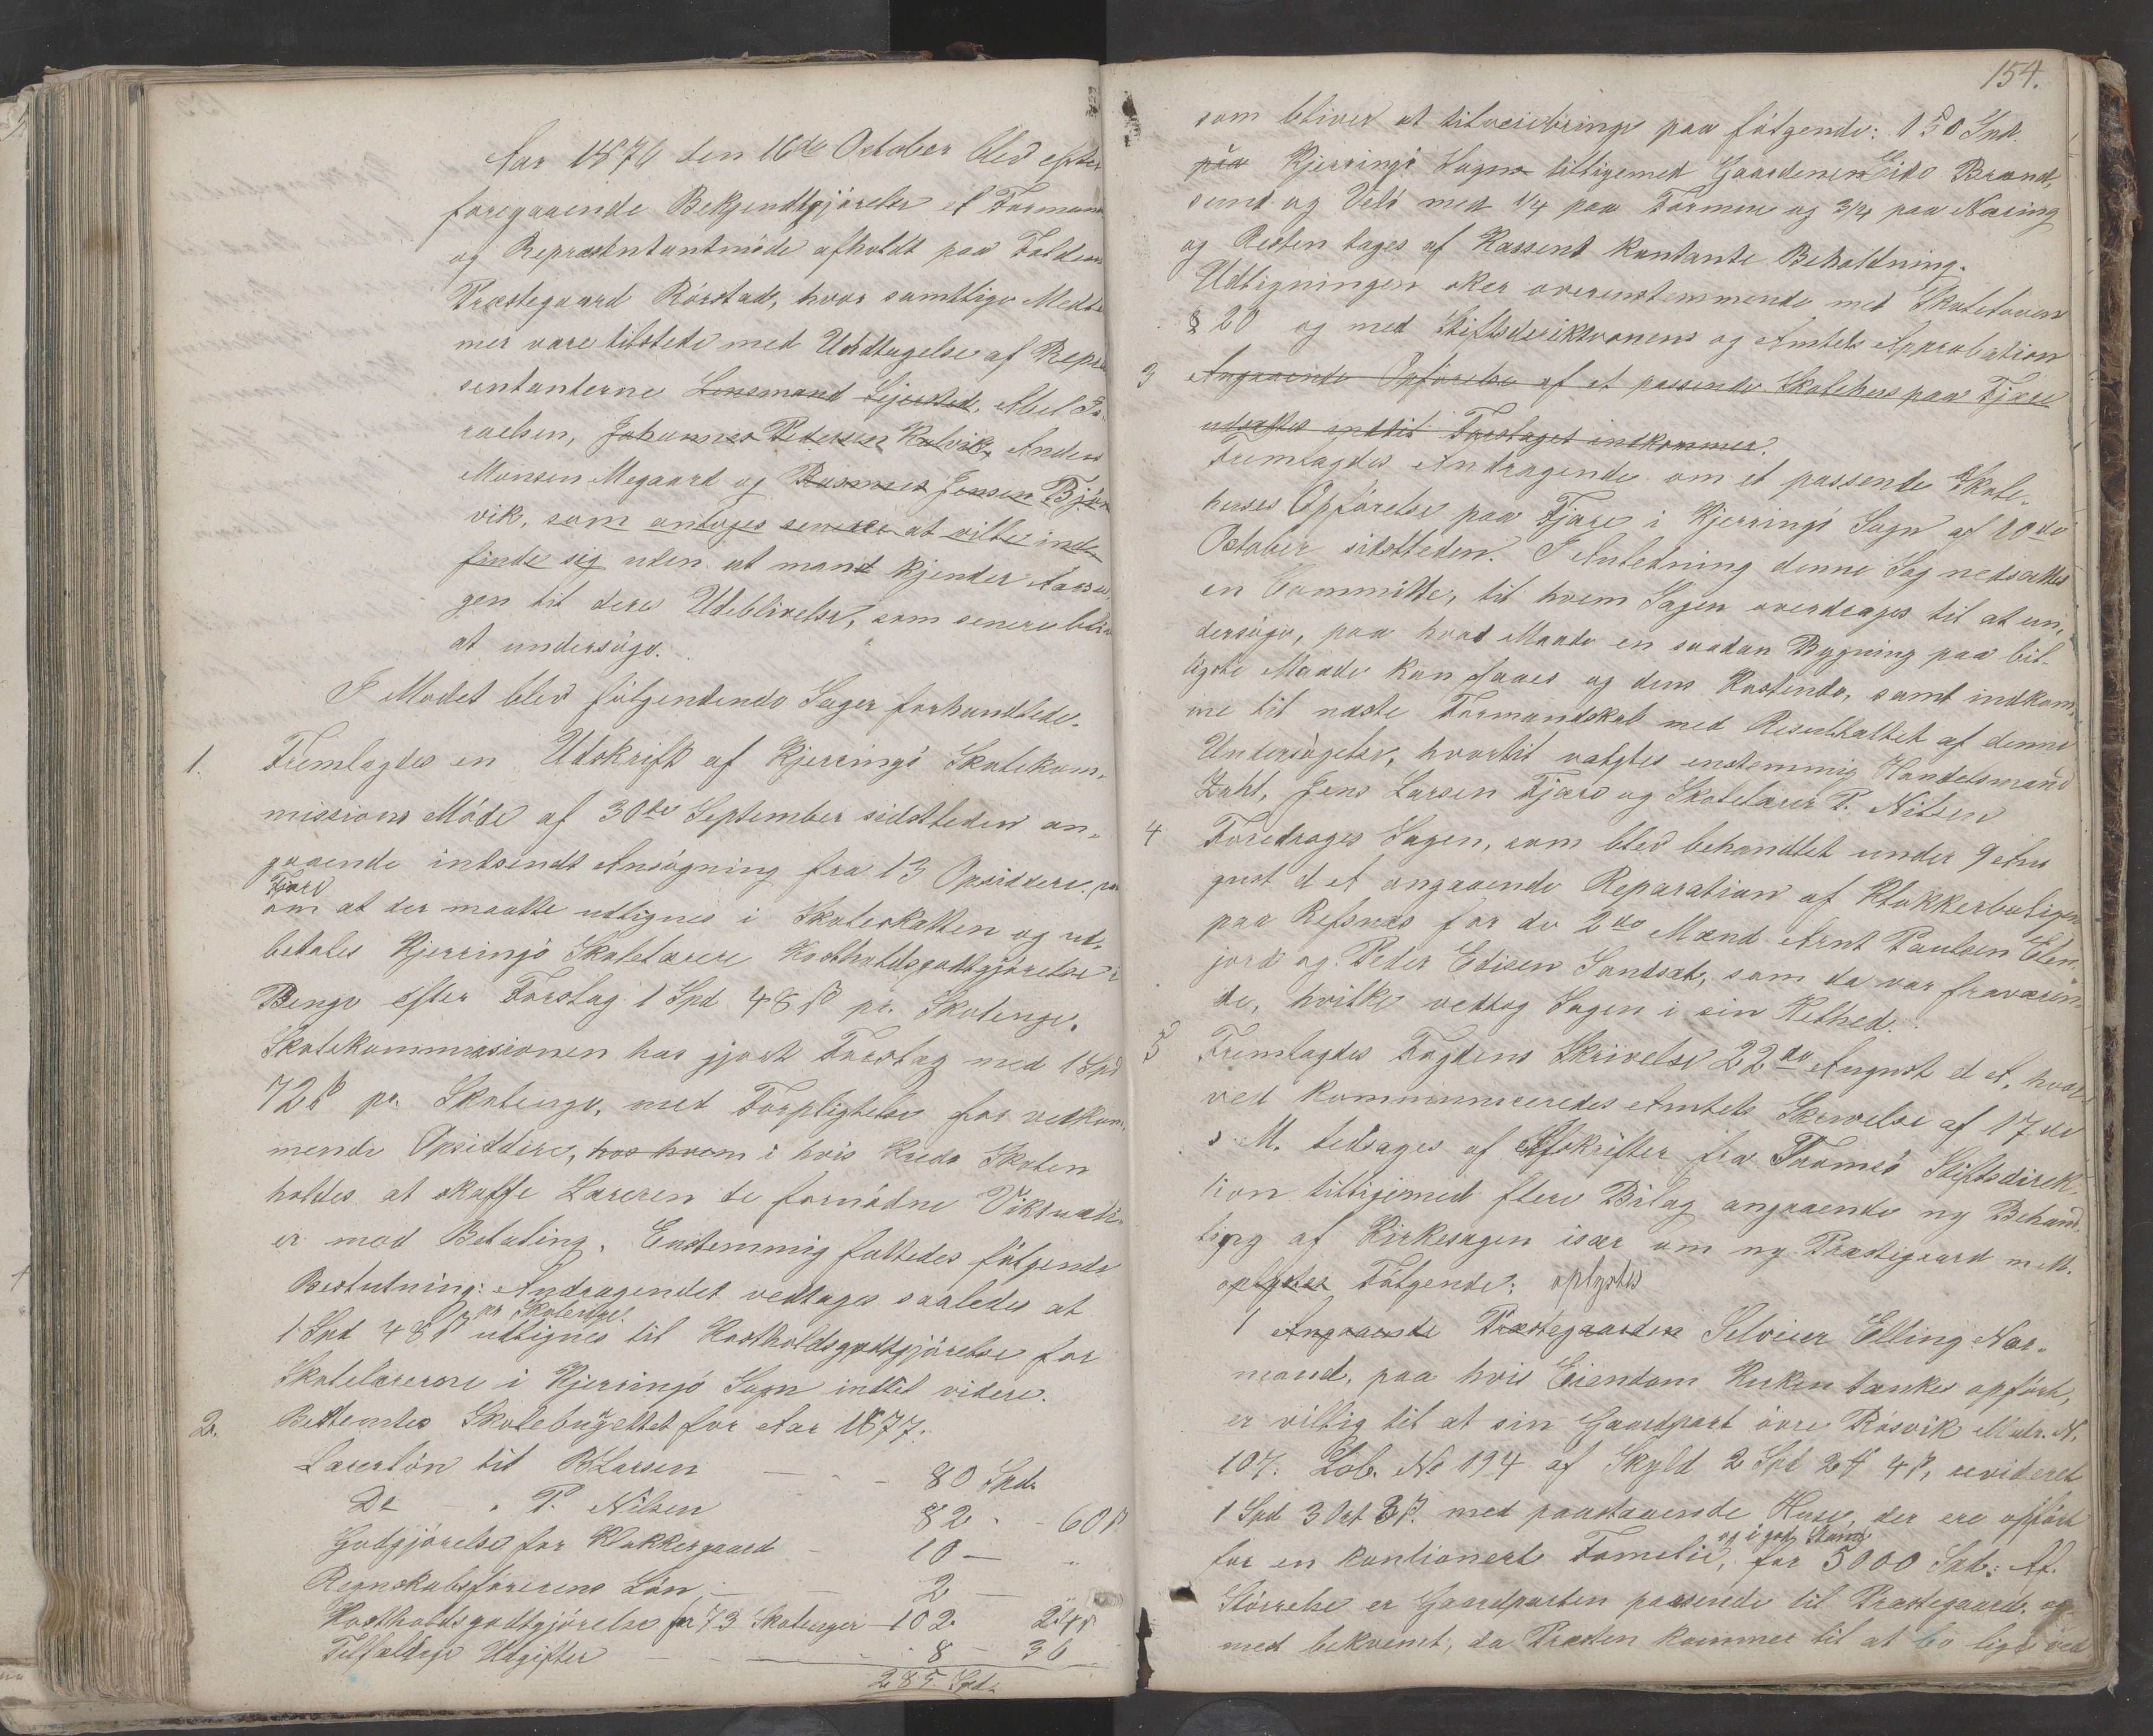 Aar 1876 den 16de October blev efter
foregaaende Bekjendtgjörelse et Formand
og Repræsentantmöde afholdt paa Foldens
Præstegaard Rörstad, hvor samtlige Medlem
mer vare tilstede med Undtagelse af Repræ
sentanterne Lensmand Sejersted, Abel Is
raelsen, Johannes Pedersen Kalvik, Anders
Monsen Megaard og Rasmus Jensen Bjön
vik, som antages senere at ville ind
finde sig uden at mand kjender Aarsa
gen til dere Udeblivelse, som senere bliv
at undersöge.
I Mødet blev fölgendende Sager forhandlede.
1. Fremlagdes en Udskrift af Kjerringö Skolekom,
missions Möde af 30de September sidstleden an,
gaaende indsendt Ansögning fra 13 Opsiddere paa
Fjære
om at der maatte udlignes i Skoleskatten og ud,
betales Kjerringö Skolelærere Kostholdsgodtgjörelse i
Penge efter Forslag 1 Spd 48 ß pr. Skoleuge.
Skolekommissionen har gjort Forslag med 1 Spd
72 ß pr. Skoleuge, med Forpligtelse for vedkom,
mende Opsiddere, hos hvem i hvis Kreds Skolen
holdes at skaffe Læreren de fornødne Viktuali
er mod Betaling. Enstemmig fattedes fölgende
Beslutning: Andragendet vedtages saaledes at
pr Skoleuge
1 Spd 48 ß udlignes til Kostholdsgodtgjörelse for
Skolelærerne i Kjerringö Sogn indtil videre.
2. Bestemtes Skolebudgettet for Aar 1877.
Lærerlön til B Larsen — - - 80 Spd.
Do - " P. Nilsen 82 - - 60 ß
Godgjörelse for Klokkergaard - 10 — "
Regnskabsförerens Lön — — 2 — "
Kostholdsgodtgjörelse for 73 Skoleuger — 102 24 ß
Tilfaldige Udgifter — - 8 — 36
285 Spd.
154.
som bliver at tilveiebringe paa fölgende: 150 Spd.
paa Kjerringö Sogn tilligemed Gaardenen Eide Brænd,
sund og Velö med 1/4 paa Formue og 3/4 paa Næring
og Resten tages af Kassens kontante Beholdning.
Udligningen sker overenstemmende med Skoleloven
§ 20 og med Stiftsdirektionens og Amtets Approbation
3 Angaaende Opförelse af et passende Skolehus paa Fjære
udsættes indtil Forslaget indkommer.
Fremlagdes Andragende om et passende Skole,
huses Opförelse paa Fjære i Kjerringö Sogn af 10de
October sidstleden. I Anledning denne Sag nedsættes
en Committe, til hvem Sagen overdrages til at un,
dersöge, paa hvad Maade en saadan Bygning paa bil-
ligste Maade kan faaes og dens Kostende, samt indkom,
me til næste Formandskab med Resulltattet af denne
Undersögelse, hvortil valgtes enstemmig Handelsmand
Zahl, Jens Larsen Fjære og Skolelærer P. Nilsen
4 Foredrages Sagen, som blev behandlet under 9 Au
gust d A angaaende Reparation af Klokkerboligen
paa Refsnæs for de 2de Mænd Arnt Paulsen Elen,
jord og Peder Edisen Sandsæt, som da var fraværen,
de, hvilke vedtog Sagen i sin Helhed.
5 Fremlagdes Fogdens Skrivelse 22de August d A, hvor
ved kommuniceredes Amtets Skrivelse af 17de
s M. ledsages af Afskrifter fra Tromsö Stiftsdirek,
tion tilligemed flere Bilag angaaende ny Behand,
ling af Kirkesagen især om ny Præstegaard m M.
oplystes Fölgende: oplystes
1 Angaaende Præstegaarden Selveier Elling Nor,
mand, paa hvis Eiendom Kirken tænkes opfört,
er villig til at sin Gaardpart övre Rösvik Matr. N.
107. Löb. No 194 af Skyld 2 Spd 2 ort 4 ß, revideret
1 Spd 3 Ort 3 ß. med paastaaende Huse, der ere opfört
og i god Stand
for en kontionert Familie, for 5000 Spd. Af
Störrelse er Gaardparten passende til Præstegaard og
med bekvemt, da Præsten kommer til at bo lige ved